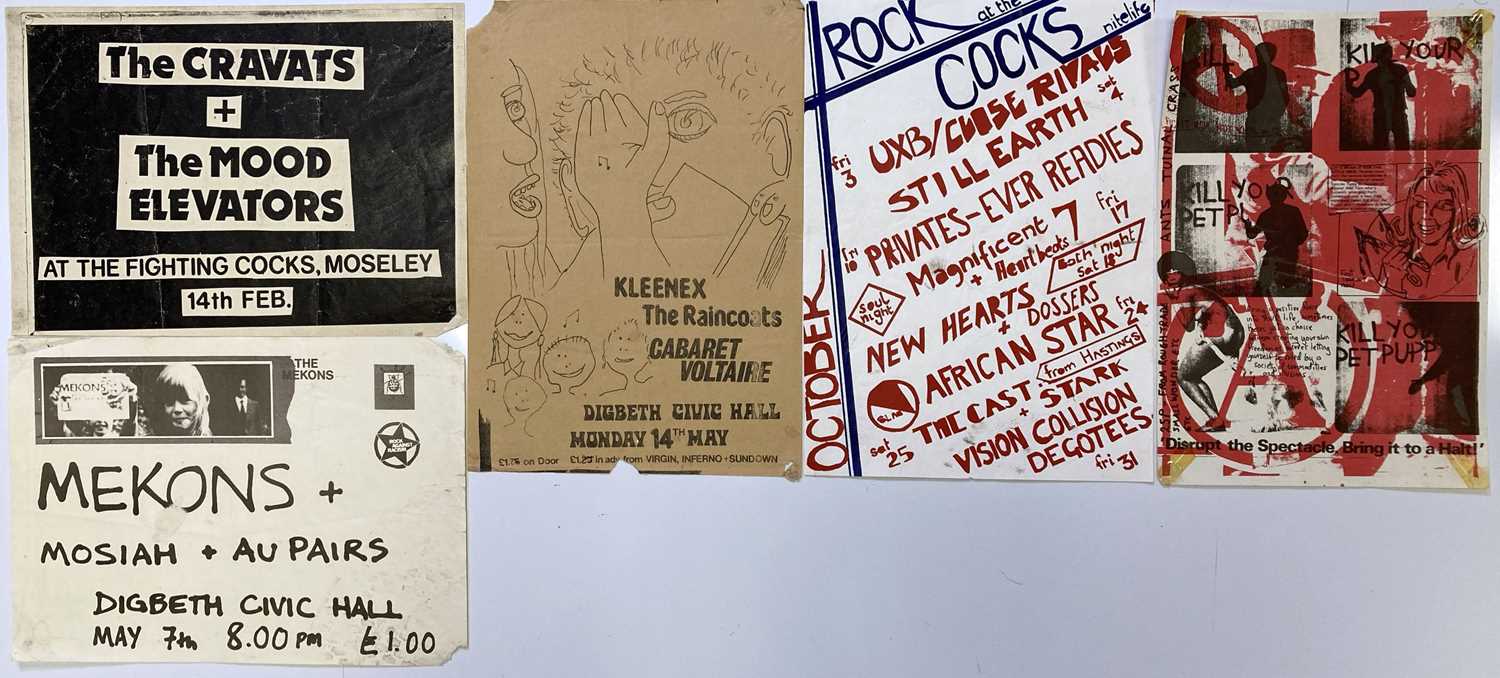 The CRAVATS
+
The MOOD
ELEVATORS
AT THE FIGHTING COCKS, MOSELEY
14th FEB.
THE
MEKONS
MEKONS
ROCK
AGAINST
RACISM
MEKONS +
MOSIAH + AU PAIRS
DIGBETH CIVIC HALL
MAY 7th 8.00 PM £1.00
KLEENEX
The Raincoats
CABARET
VOLTAIRE
DIGBETH CIVIC HALL
MONDAY 14TH MAY
£1.75 on Door £1.25 in adv from VIRGIN, INFERNO + SUNDOWN
ROCK at the
COCKS nitelife
OCTOBER
fri 3 UXB/CLOSE RIVALS
STILL EARTH sat 4
fri 10 PRIVATES-EVER READIES
Magnificent 7 fri 17
+ Heartbeats
Both night
Sat 18
soul
night
NEW HEARTS
+ DOSSERS fri 24
AFRICAN STAR
(from HASTINGS)
THE CAST + STARK
sat 25
VISION COLLISION
DEGOTEES
fri 31
KILL
KILL YOUR
P
KILL YOUR
PET PU
KILL YO
PET PUPP
ANTS TUINAL CRASS
25P FROM ROUGHTRADE
SMALL WONDER ETC
'Disrupt the Spectacle, Bring it to a Halt!'